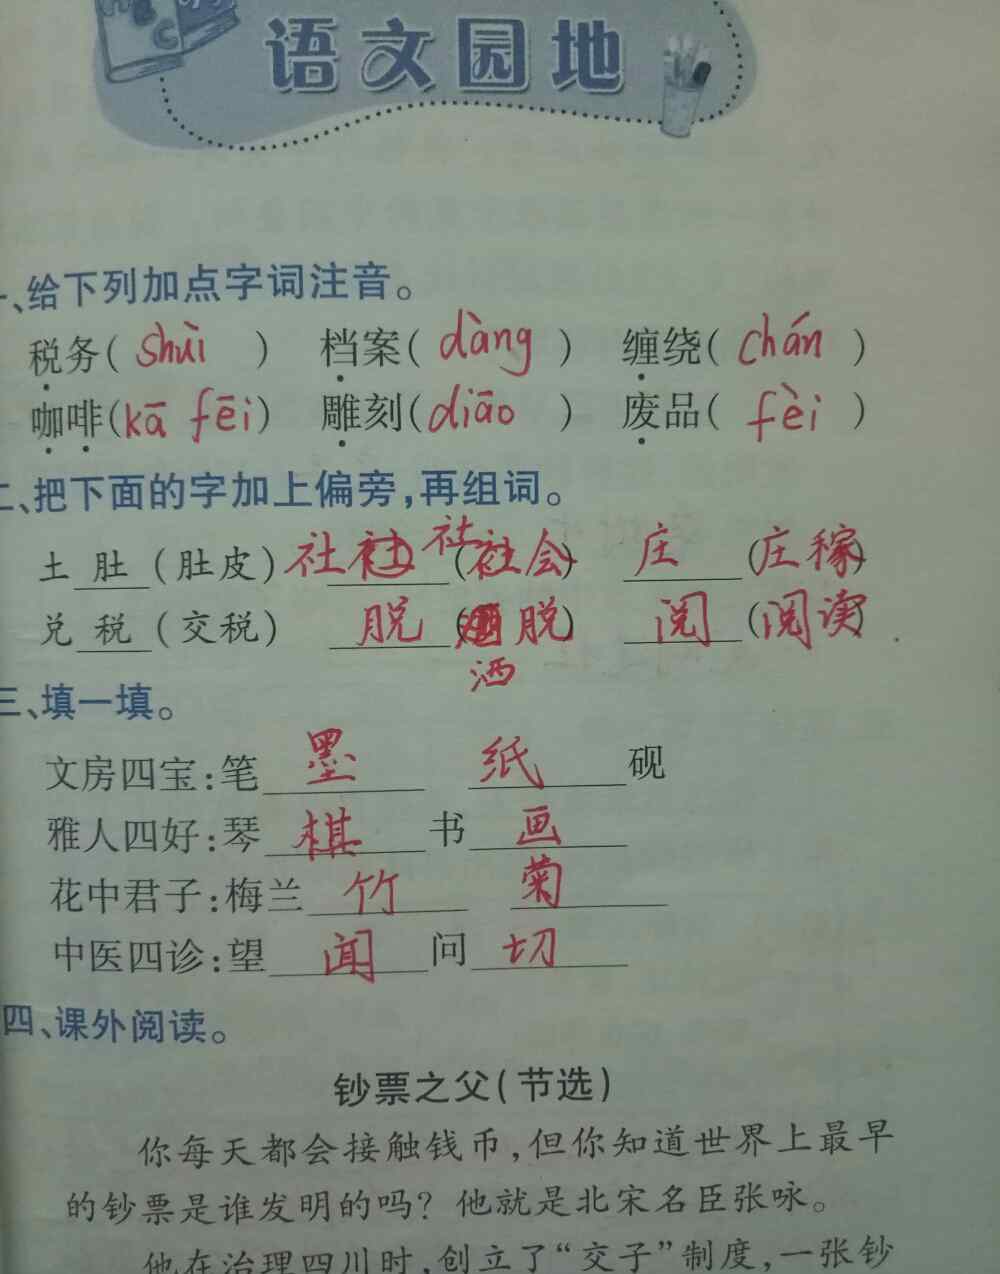 语文园地
一、给下列加点字词注音。
税务( shuì ) 档案( dàng ) 缠绕( chán )
咖啡( kā fēi ) 雕刻( diāo ) 废品( fèi )
二、把下面的字加上偏旁,再组词。
土 肚 (肚皮) 社 社 社 (社会) 庄 (庄稼)
兑 税 (交税) 脱 (脱) 阅 (阅读)
洒
三、填一填。
文房四宝:笔 墨 纸 砚
雅人四好:琴 棋 书 画
花中君子:梅兰 竹 菊
中医四诊:望 闻 问 切
四、课外阅读。
钞票之父(节选)
你每天都会接触钱币,但你知道世界上最早
的钞票是谁发明的吗?他就是北宋名臣张咏。
他在治理四川时,创立了“交子”制度,一张钞